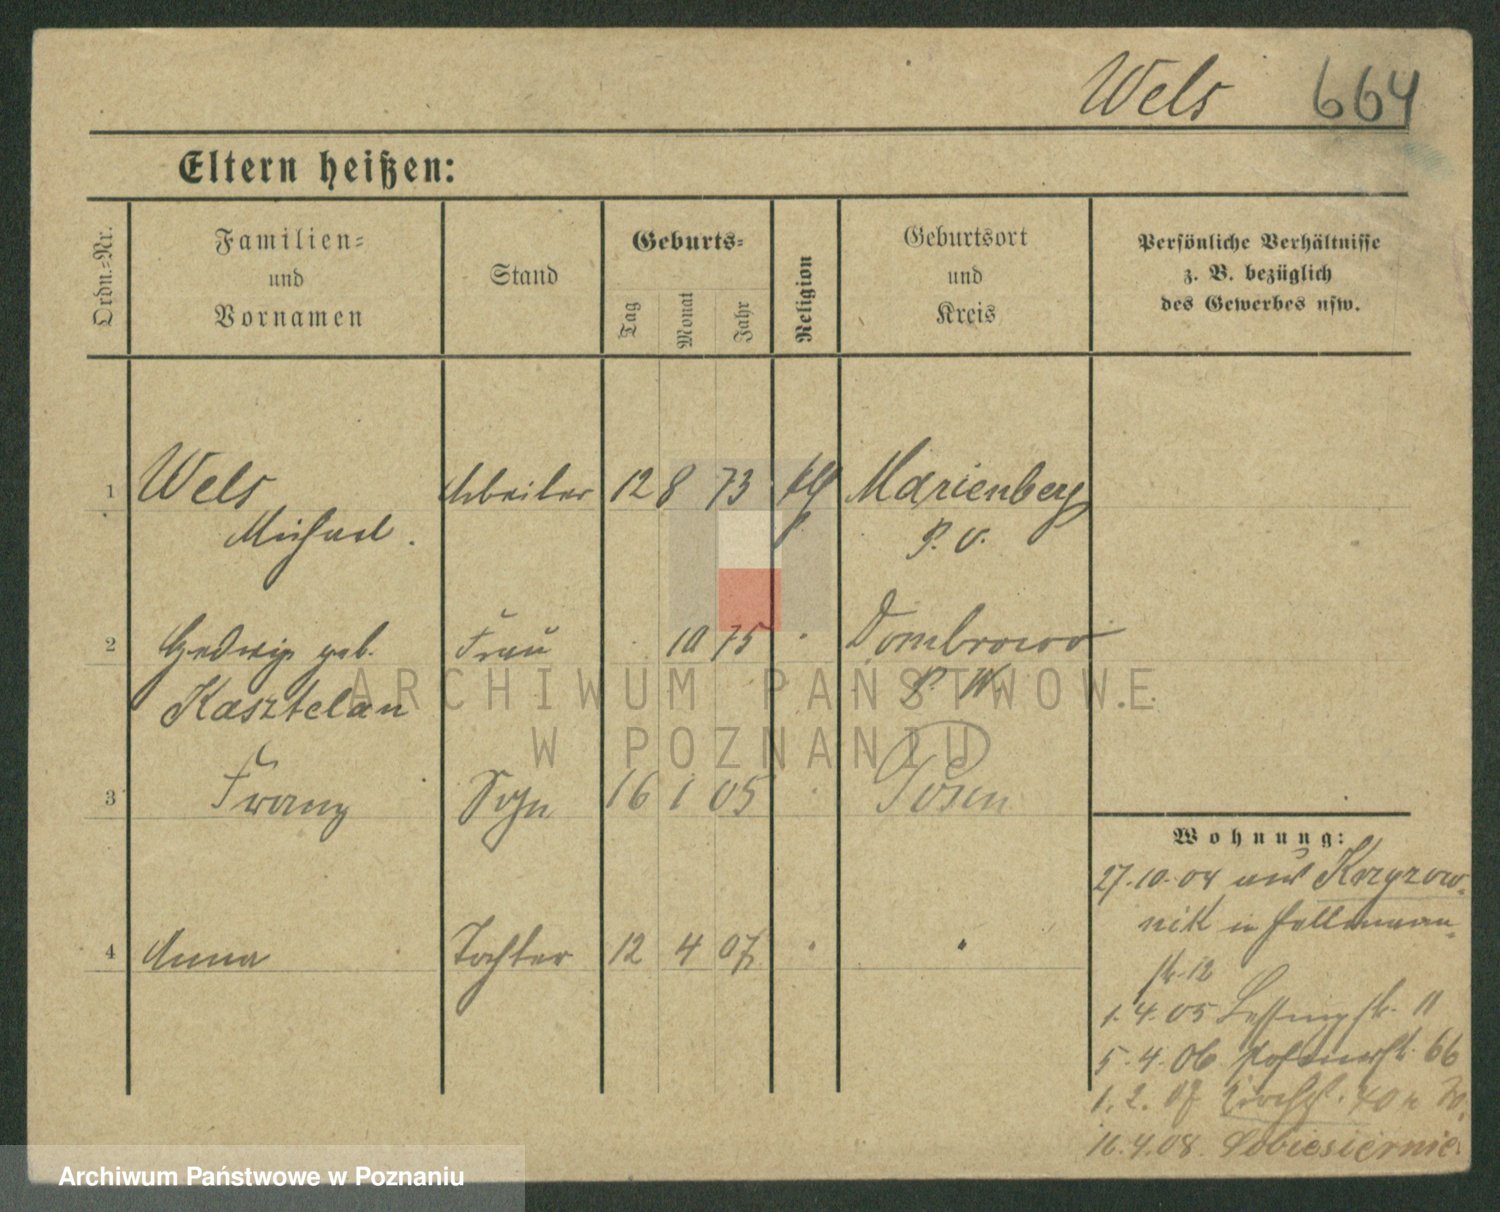 Wels 664
Eltern heißen:
Ordn.-Nr.
Familien-
und
Vornamen
Stand
Geburts-
Tag
Monat
Jahr
Religion
Geburtsort
und
Kreis
Persönliche Verhältnisse
z. B. bezüglich
des Gewerbes usw.
1 Wels Arbeiter 12 8 73 Marienberg
Michael. P. O.
2 Hedwig geb. Frau 10 75 Dombrowo
Kasztelan P. W.
3 Franz Sohn 16 1 05 Posen
4 Anna Tochter 12 4 07 " "
Wohnung:
27.10.04 aus Krzyzow-
nik in
str. 12
1.4.05 Lessingstr. 11
5.4.06 Posenerstr. 66
1.2.07
16.4.08. Sobiesiernie
ARCHIWUM PAŃSTWOWE
W POZNANIU
Archiwum Państwowe w Poznaniu